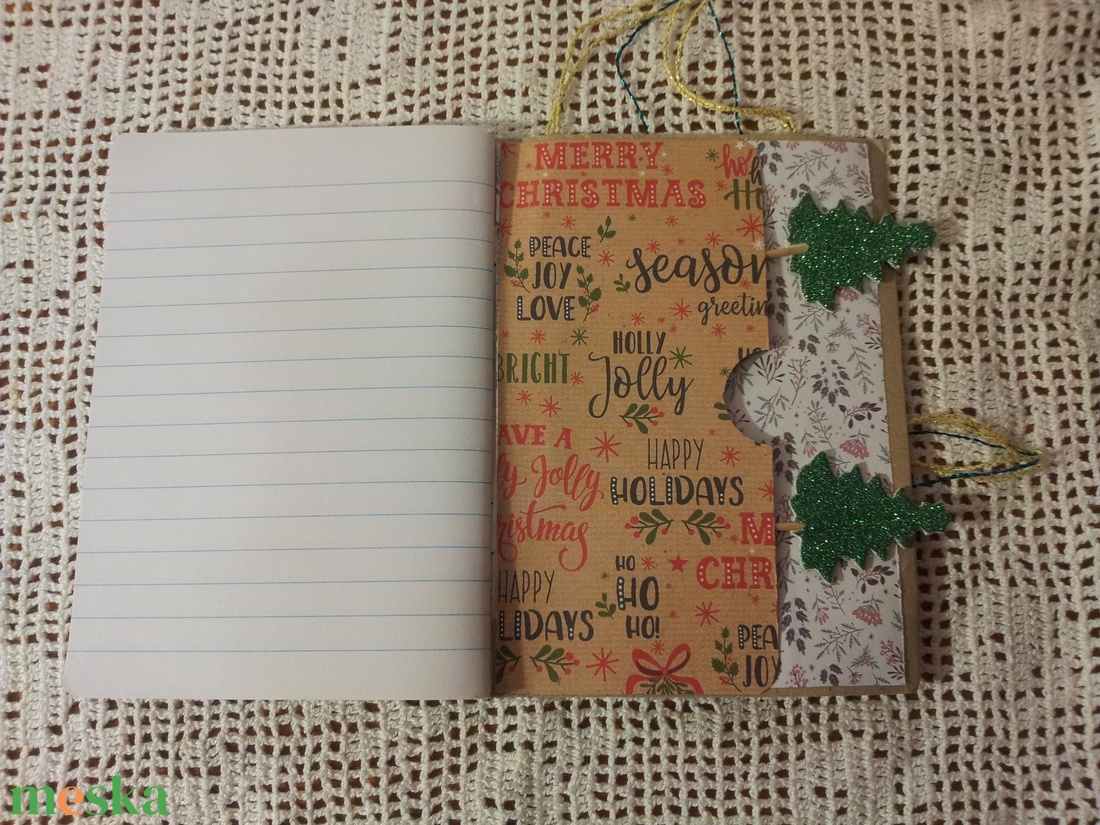 MERRY
CHRISTMAS
PEACE
JOY
LOVE
season
greetin
HOLLY
Jolly
BRIGHT
AVE A
ly Jolly
ristmas
HAPPY
HOLIDAYS
M
CHR
HO
HO
HO!
HAPPY
LIDAYS
PEA
JOY
meska